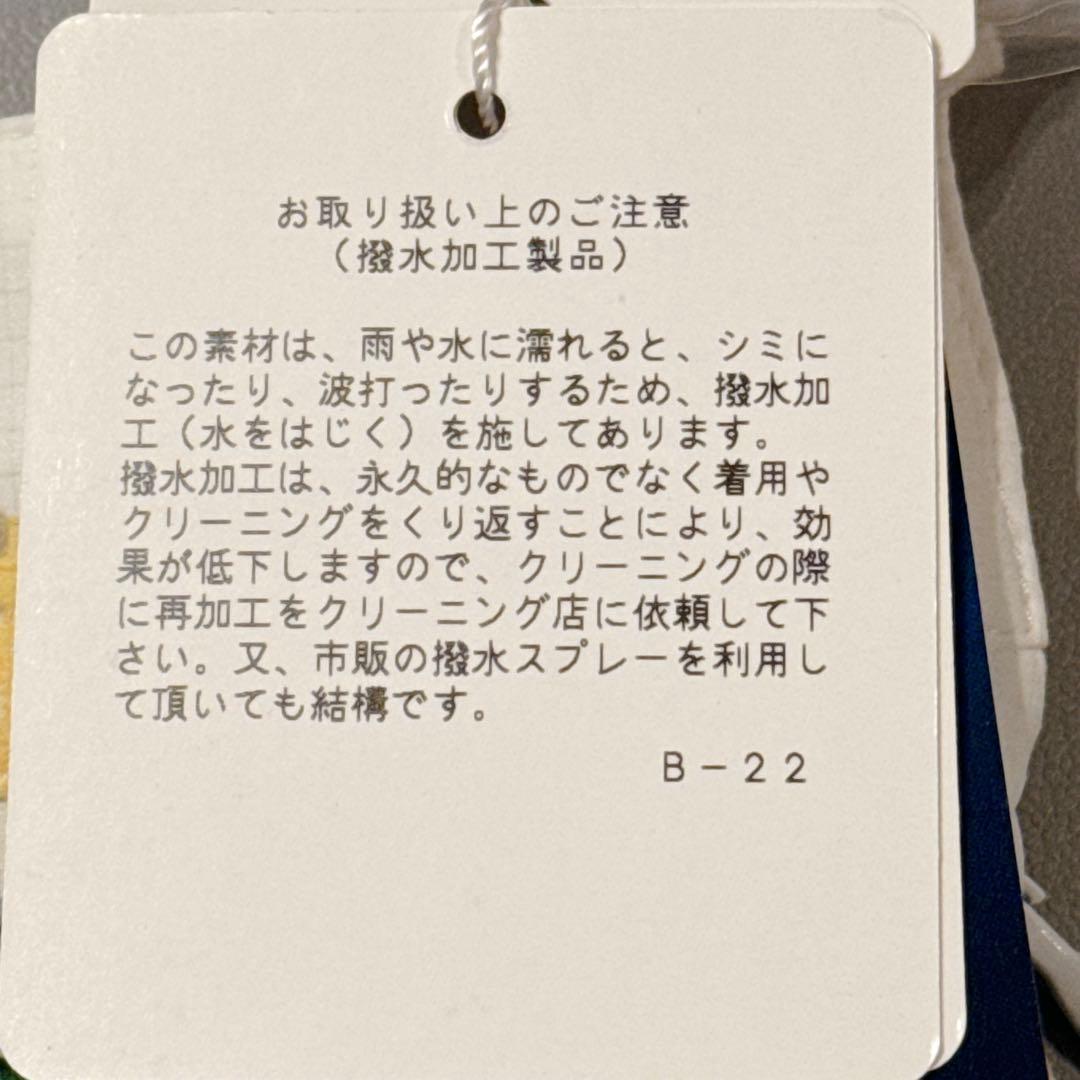 お取り扱い上のご注意
（撥水加工製品）
この素材は、雨や水に濡れると、シミに
なったり、波打ったりするため、撥水加
工（水をはじく）を施してあります。
撥水加工は、永久的なものでなく着用や
クリーニングをくり返すことにより、効
果が低下しますので、クリーニングの際
に再加工をクリーニング店に依頼して下
さい。又、市販の撥水スプレーを利用し
て頂いても結構です。
B－22